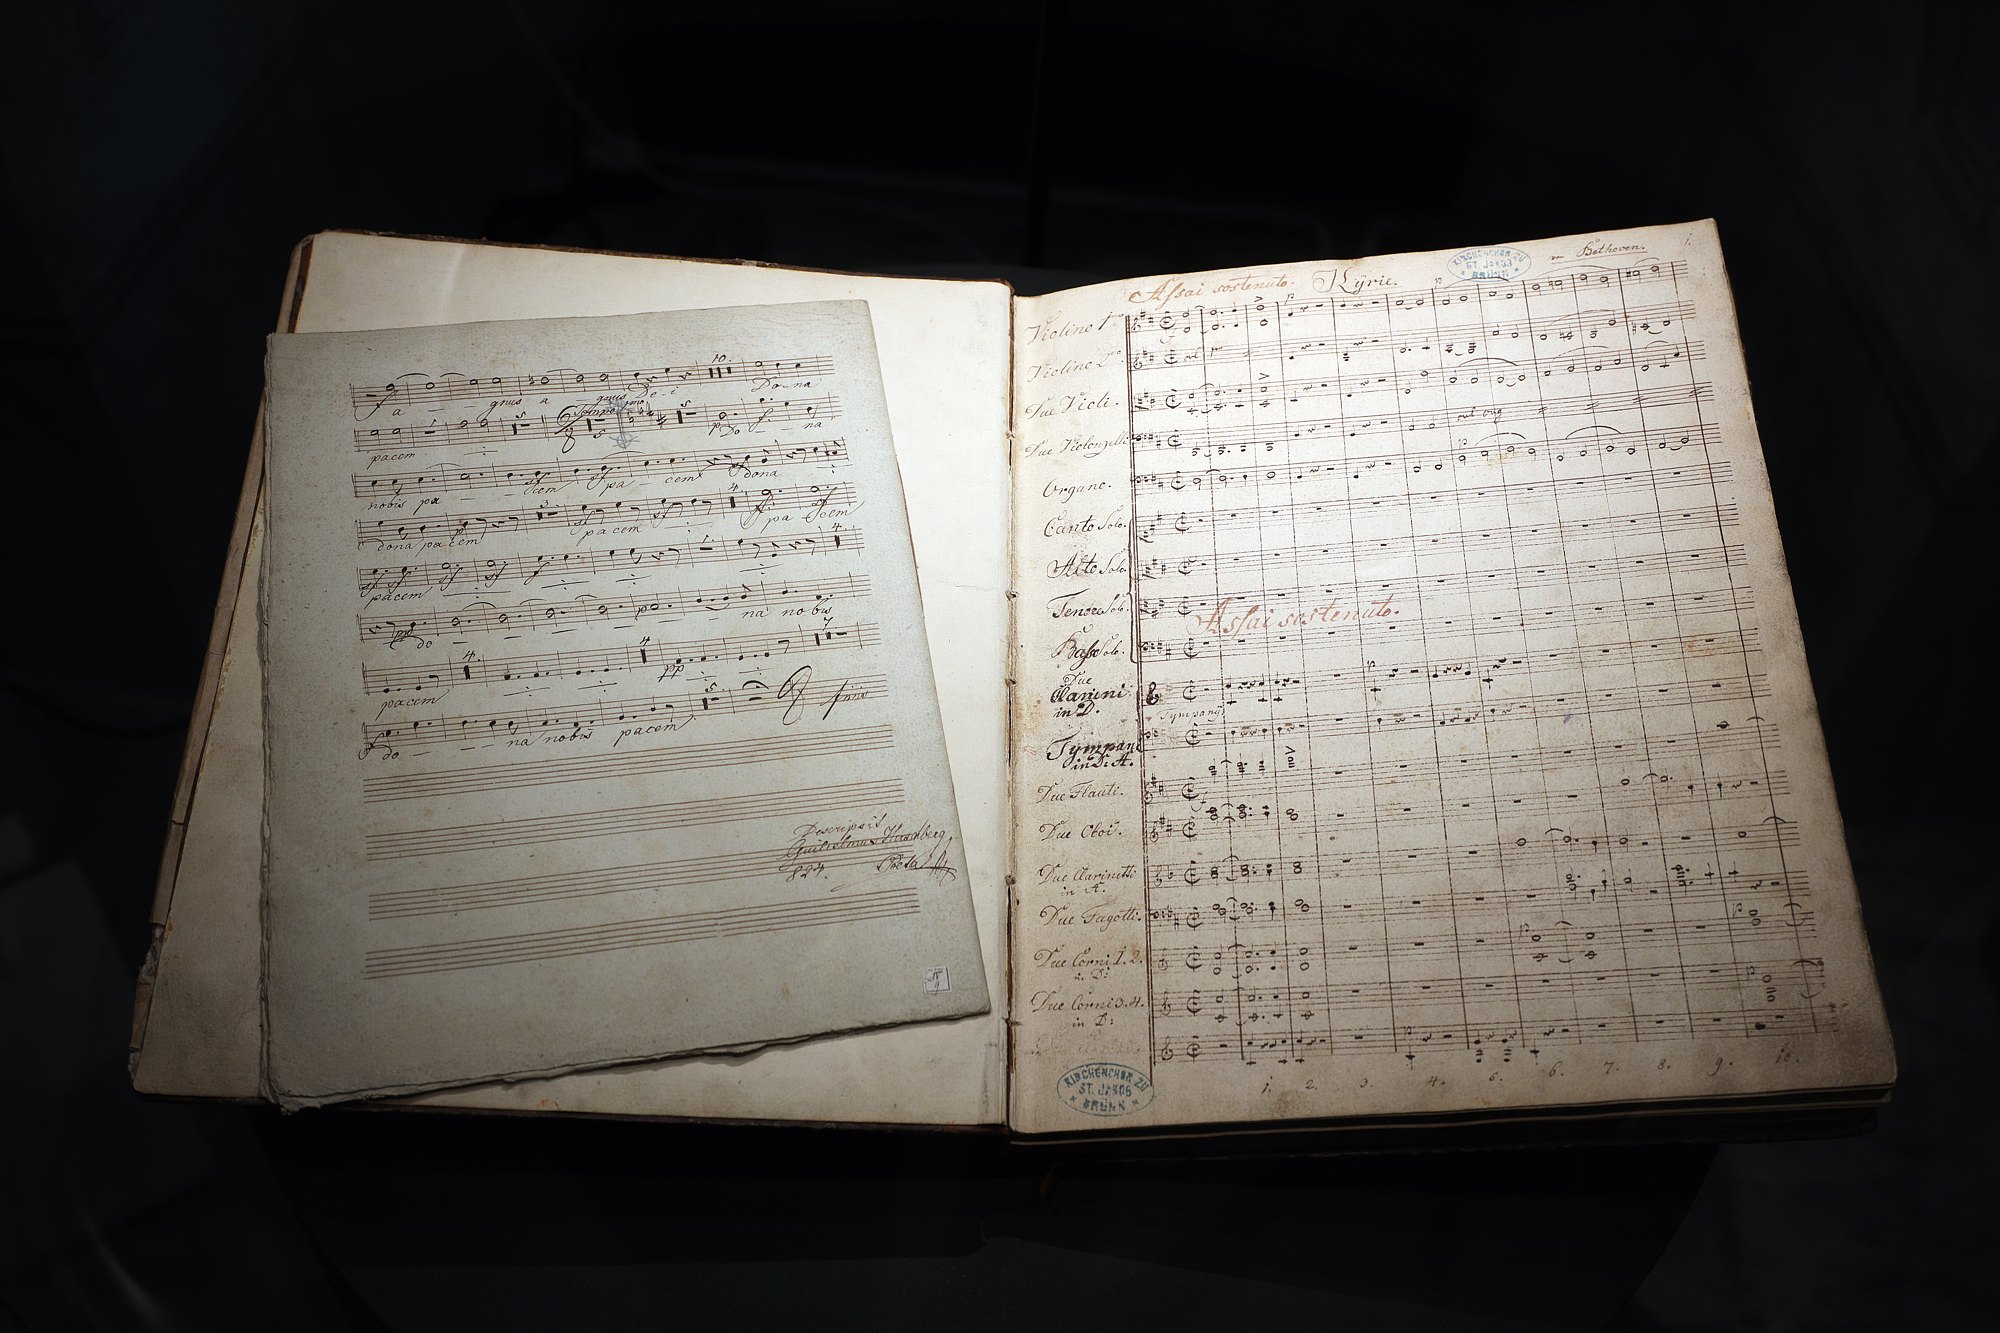 10.
a gnus a gnus De-i Do-na
5 Tempo primo 5 5
pacem p Do na
nobis pa cem pa cem dona
3 4
dona pacem pacem pa cem
4.
pacem
Do pa na nobis
4. 4 pp 7
pacem
5 Fine
do na nobis pacem
Descripsit
824.
IV
9
Assai sostenuto. Kÿrie.
KIRCHENCHOR ZU
ST. JAKOB
BRÜNN
von Bethoven.
1.
Violino 1mo
Violino 2do.
Due Violi.
Due Violonzelli
col Org
Organo.
Canto Solo.
Alto Solo.
Tenore Solo.
Assai sostenuto.
Basso Solo.
Due
Clarini
in D.
Tympany
Tympani
in D: A.
Due Flauti.
Due Oboi.
Due Clarinetti
in A.
Due Fagotti.
Due Corni 1. 2.
in D:
Due Corni 3. 4.
in D:
1. 2. 3. 4. 5. 6. 7. 8. 9. 10.
KIRCHENCHOR ZU
ST. JAKOB
BRÜNN